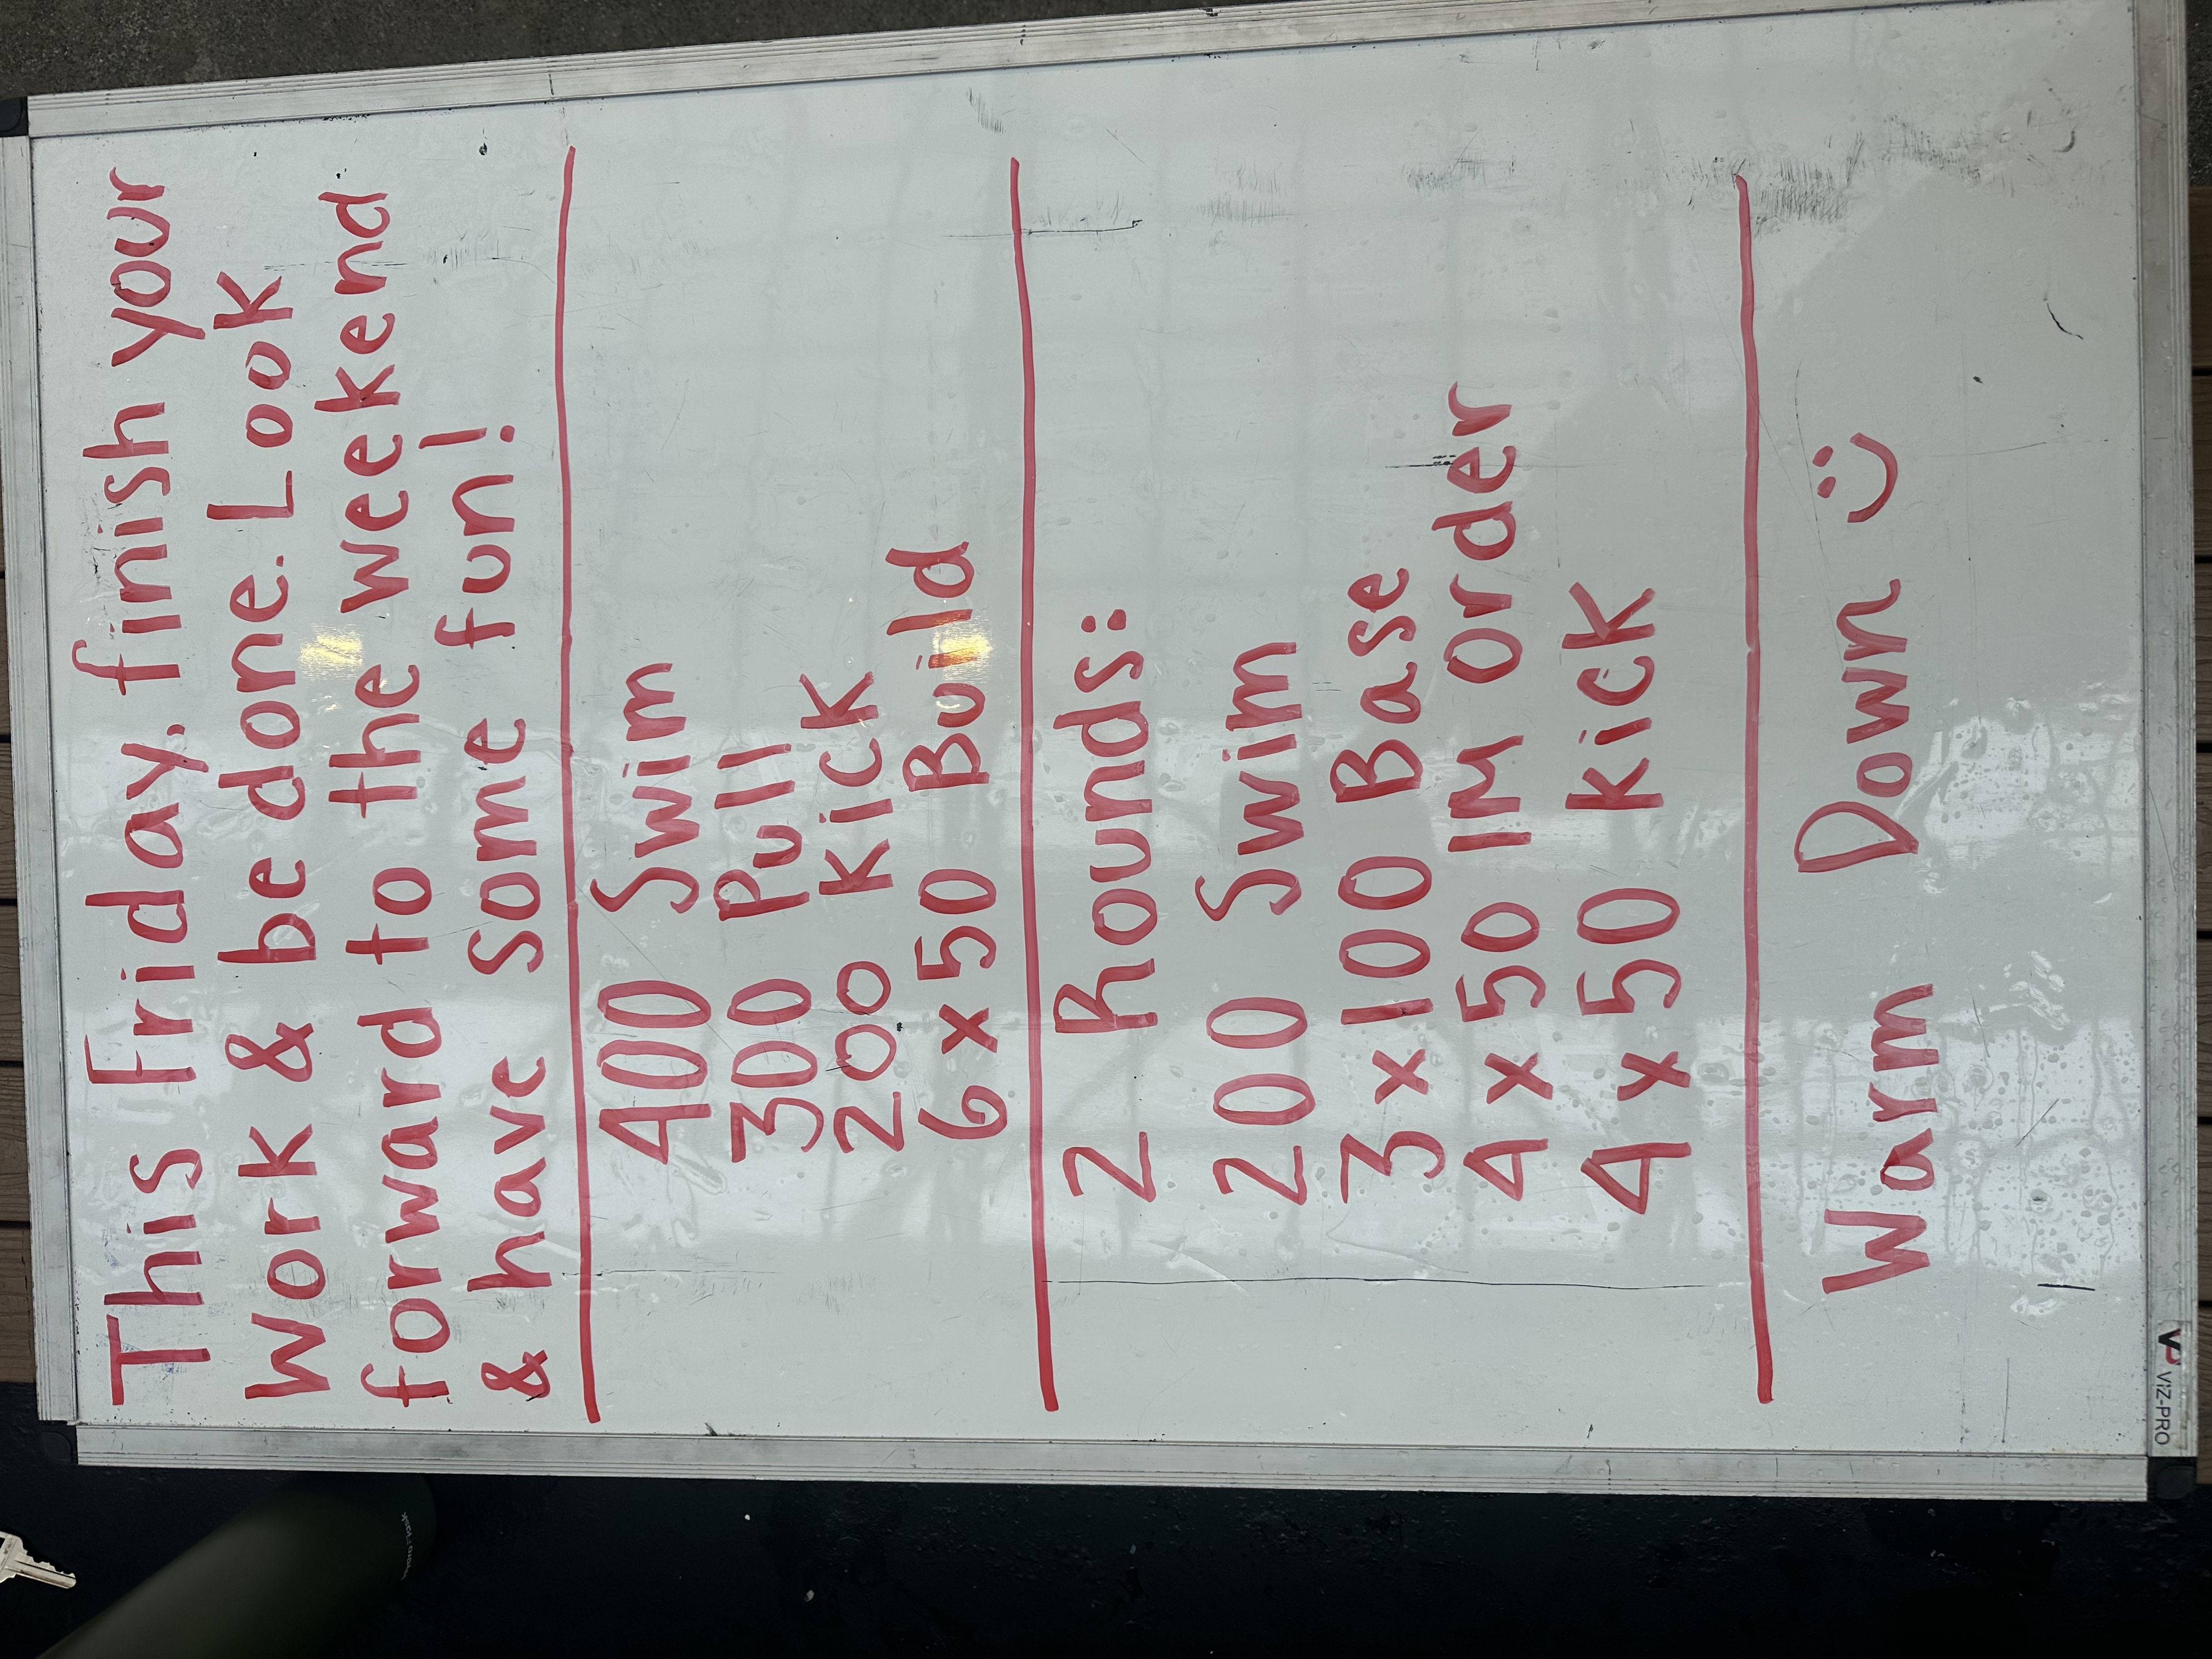 This Friday. finish your
work & be done. Look
forward to the weekend
& have some fun!
400 Swim
300 Pull
200 Kick
6 x 50 Build
2 Rounds:
200 Swim
3 x 100 Base
4 x 50 IM order
4 x 50 Kick
Warm Down
VIZ-PRO